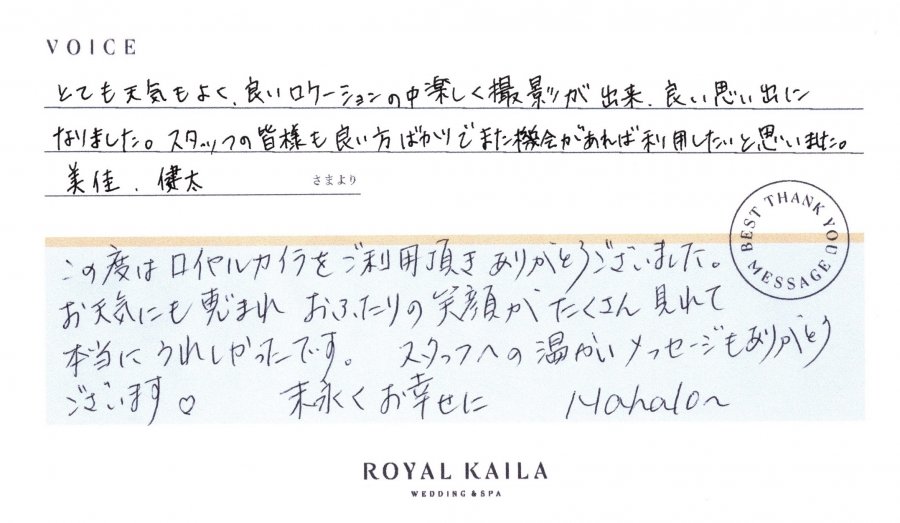 VOICE
とても天気もよく、良いロケーションの中楽しく撮影が出来、良い思い出に
なりました。スタッフの皆様も良い方ばかりでまた機会があれば利用したいと思いました。
美佳、健太 さまより
BEST THANK YOU MESSAGE
この度はロイヤルカイラをご利用頂きありがとうございました。
お天気にも恵まれ おふたりの笑顔がたくさん見れて
本当にうれしかったです。 スタッフへの温かいメッセージもありがとう
ございます♡ 末永くお幸せに Mahalo〜
ROYAL KAILA
WEDDING & SPA